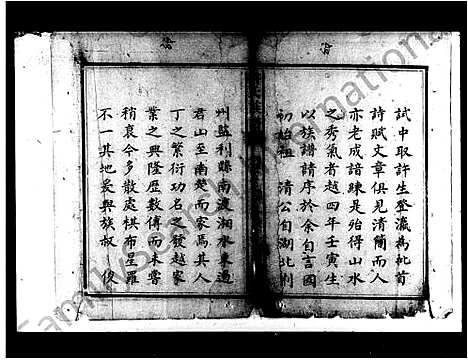 試中取許生登瀛為拕前
詩賦文章俱見清簡而人
亦老成諳練是殆得山水
之秀氣者越四年壬寅生
以族譜請序於余自言國
初始祖 清公自湖北荆
州監利縣南渡湘水東過
君山至南楚而家焉其人
丁之繁衍功名之發越家
業之興隆歷數傳而未嘗
稍衰今多散處棋布星羅
不一其地爰與族叔 俊